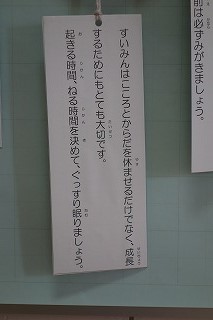 すいみんはこころとからだを休ませるだけでなく、成長
するためにもとても大切です。
起きる時間、ねる時間を決めて、ぐっすり眠りましょう。
前は必ずみがきましょう。